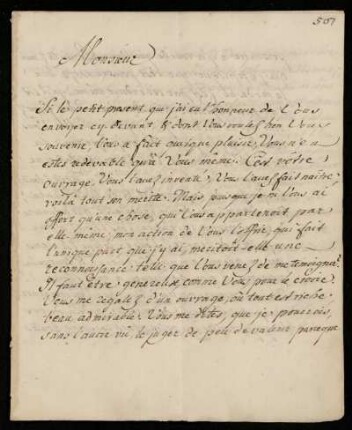 507
Monsieur
Si le petit present, que j'ai eu l'honneur de Vous
envoyer cy devant & dont Vous voulés bien Vous
souvenir, Vous a fait quelque plaisir, Vous n'en
estes redevable qu'à Vous meme. C'est votre
ouvrage. Vous l'avés inventé. Vous l'avés fait naitre.
voilà tout son merite. Mais puisque je ne Vous ai
offert qu'une chose, qui Vous appartenoit par
elle même, mon action de Vous l'offrir, qui fait
l'unique part que j'y ai, meritoit-elle une
reconnoissance telle que Vous venés de me temoigner?
Il faut être genereux comme Vous pour le croire.
Vous me regalés d'un ouvrage, où tout est riche
beau admirable. Vous me dites, que je pourrois,
sans l'avoir vû, le juger de peu de valeur parceque